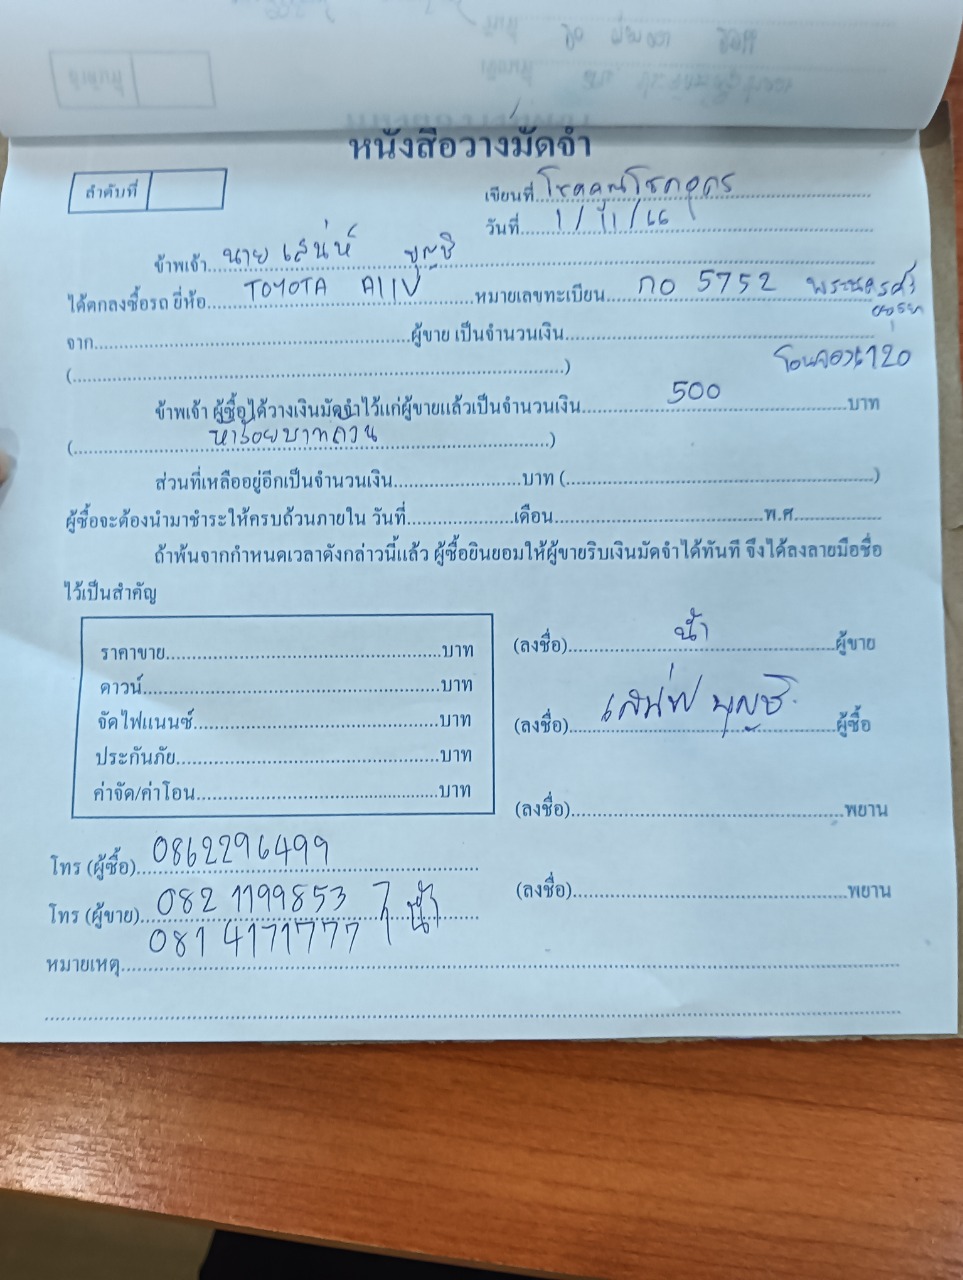 หนังสือวางมัดจำ
ลำดับที่
เขียนที่ โชคคูณโชคอุดร
วันที่ 1/11/66
ข้าพเจ้า นาย เสน่ห์ บุญชิ
ได้ตกลงซื้อรถ ยี่ห้อ TOYOTA หมายเลขทะเบียน กอ 5752 พระนครศรี
อยุธยา
จาก ผู้ขาย เป็นจำนวนเงิน
( ) โอนจอง 120
ข้าพเจ้า ผู้ซื้อได้วางเงินมัดจำไว้แก่ผู้ขายแล้วเป็นจำนวนเงิน 500 บาท
( ห้าร้อยบาทถ้วน )
ส่วนที่เหลืออยู่อีกเป็นจำนวนเงิน บาท ( )
ผู้ซื้อจะต้องนำมาชำระให้ครบถ้วนภายใน วันที่ เดือน พ.ศ.
ถ้าพ้นจากกำหนดเวลาดังกล่าวนี้แล้ว ผู้ซื้อยินยอมให้ผู้ขายริบเงินมัดจำได้ทันที จึงได้ลงลายมือชื่อ
ไว้เป็นสำคัญ
ราคาขาย บาท
ดาวน์ บาท
จัดไฟแนนซ์ บาท
ประกันภัย บาท
ค่าจัด/ค่าโอน บาท
(ลงชื่อ) น้ำ ผู้ขาย
(ลงชื่อ) เสน่ห์ บุญชิ ผู้ซื้อ
(ลงชื่อ) พยาน
(ลงชื่อ) พยาน
โทร (ผู้ซื้อ) 0862296499
โทร (ผู้ขาย) 082 1199853 น้ำ
081 4171777
หมายเหตุ